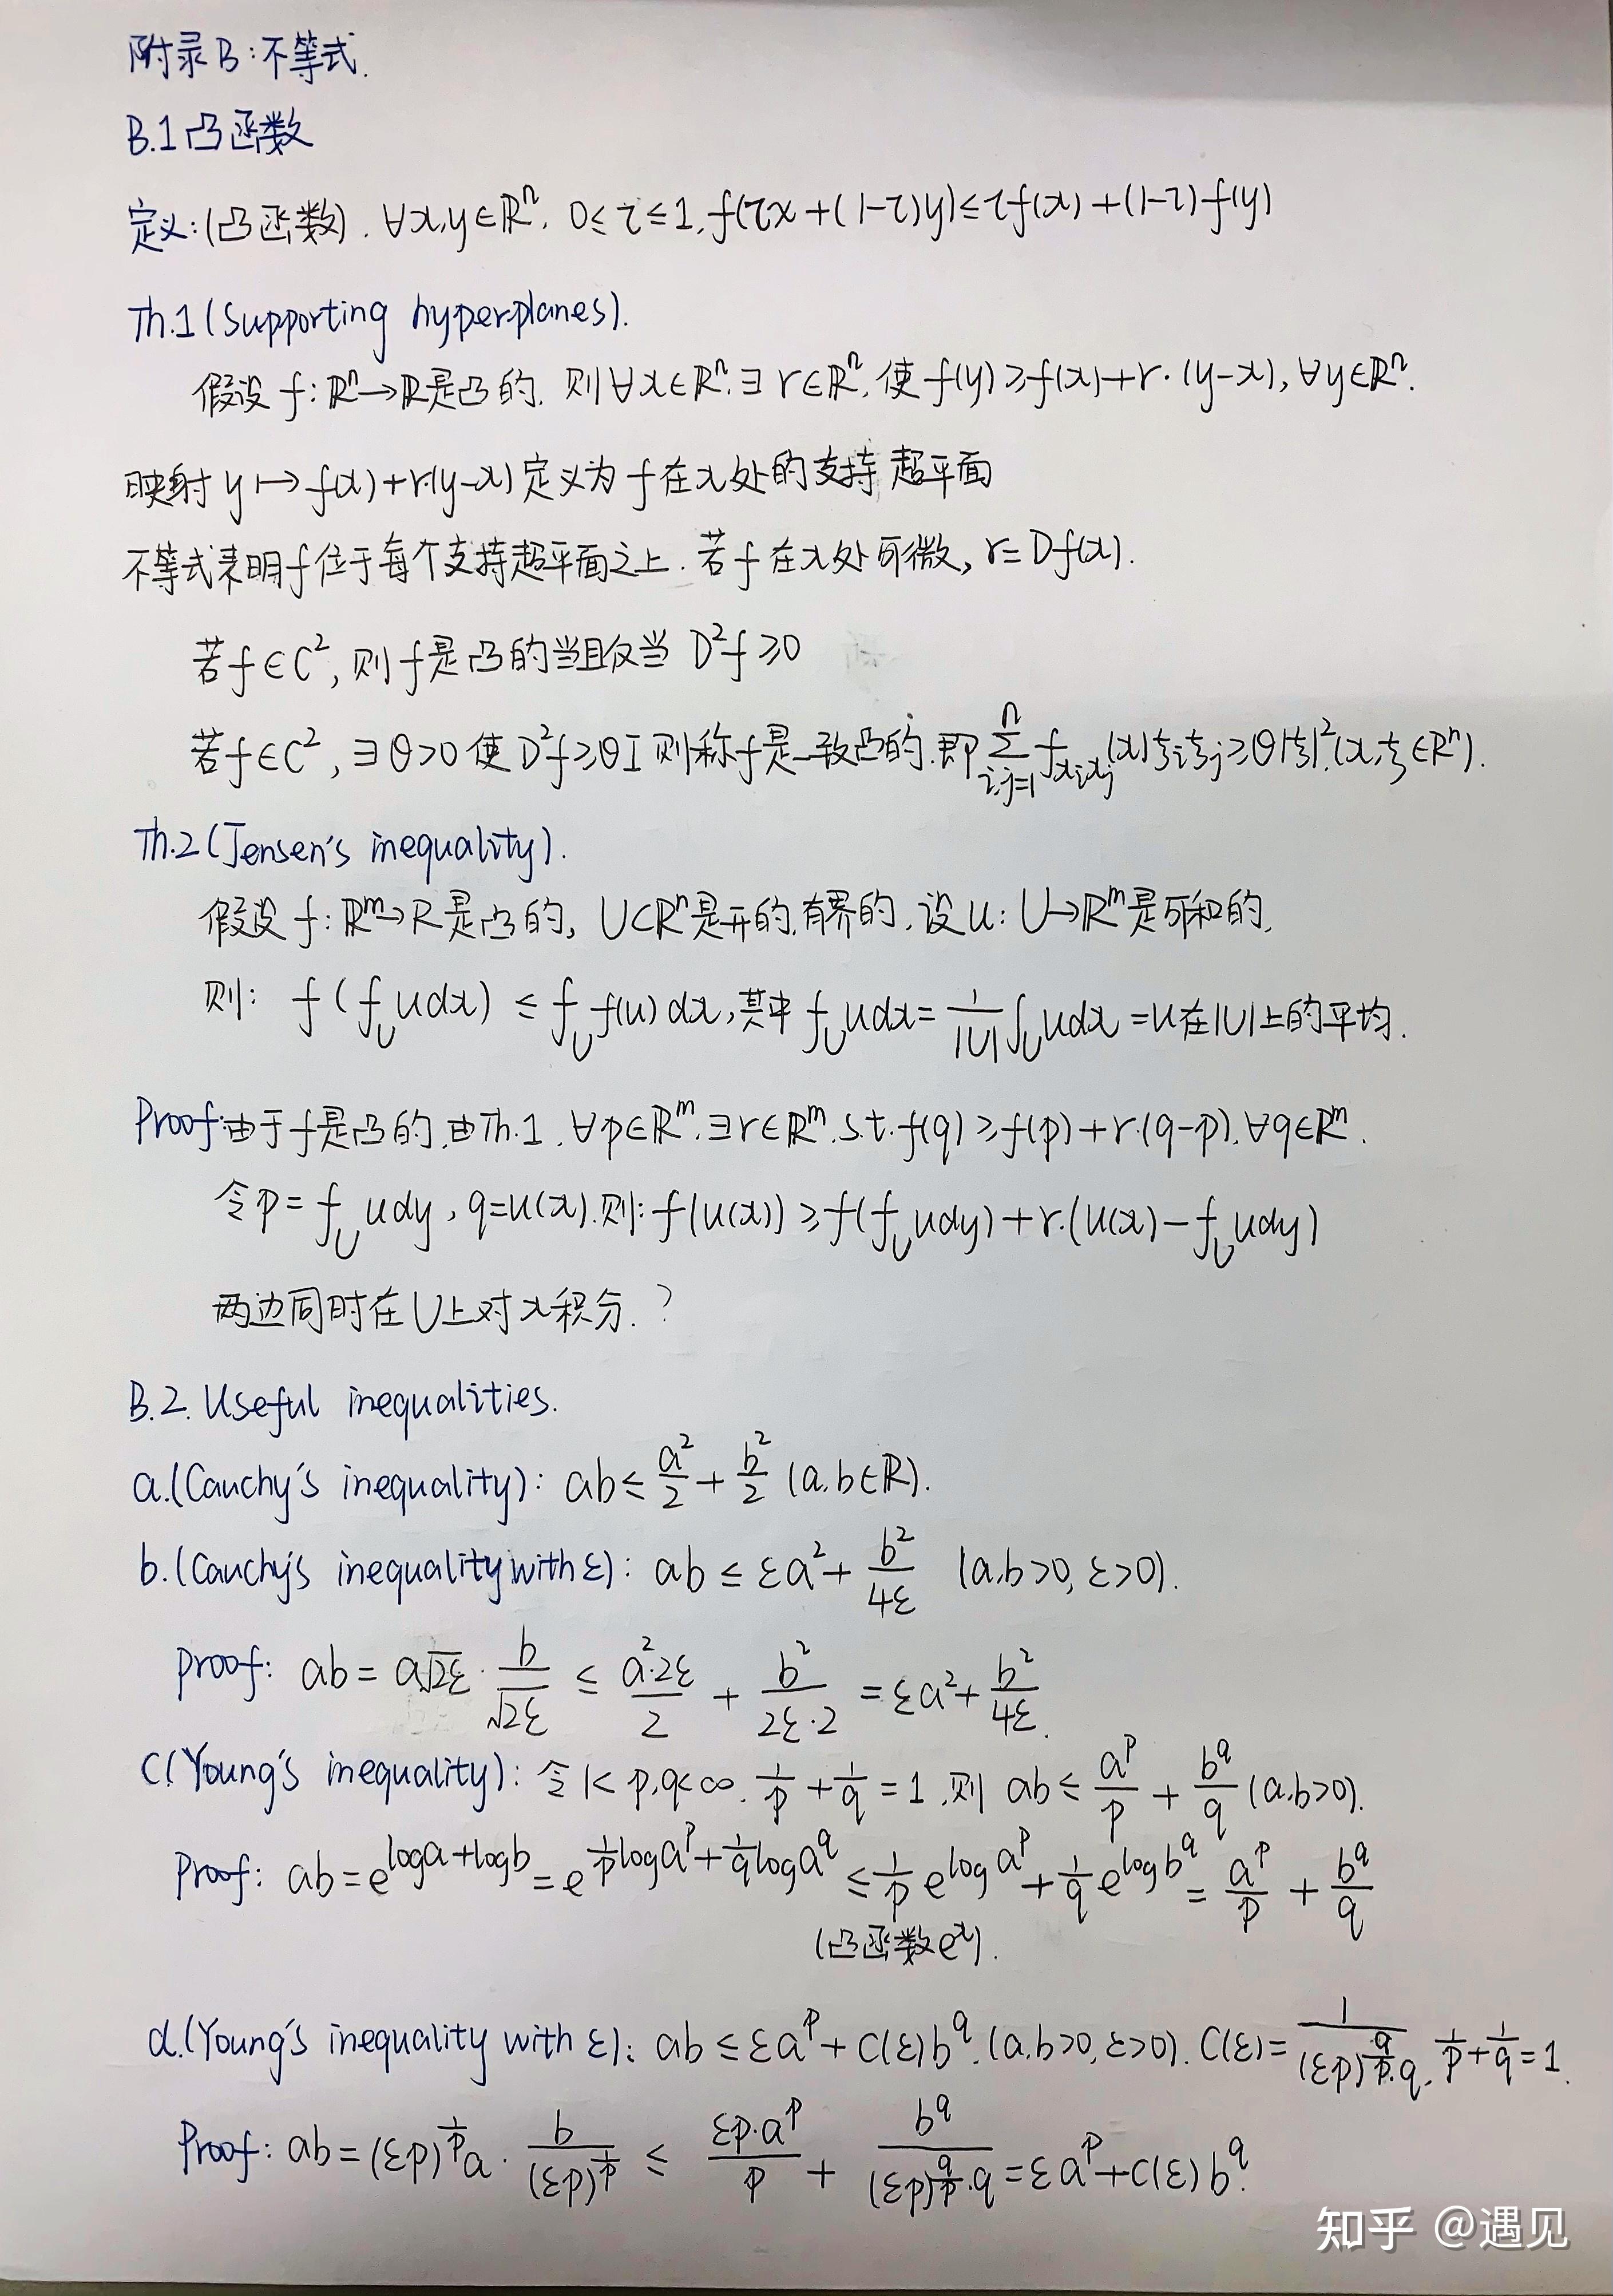 附录B:不等式.
B.1 凸函数
定义:(凸函数). ∀x,y∈ℝⁿ, 0≤τ≤1, f(τx+(1-τ)y)≤τf(x)+(1-τ)f(y)
Th.1(Supporting hyperplanes).
假设 f:ℝⁿ→ℝ是凸的. 则∀x∈ℝⁿ,∃r∈ℝⁿ, 使 f(y)≥f(x)+r·(y-x), ∀y∈ℝⁿ.
映射 y↦f(x)+r·(y-x) 定义为 f 在x处的支持超平面
不等式表明f位于每个支持超平面之上. 若f在x处可微, r=Df(x).
若f∈C², 则f是凸的当且仅当 D²f≥0
若f∈C², ∃θ>0 使 D²f≥θI 则称f是一致凸的. 即 ∑_{i,j=1}^{n} f_{x_i x_j}(x)ξ_iξ_j≥θ|ξ|². (x,ξ∈ℝⁿ).
Th.2(Jensen's inequality).
假设 f:ℝᵐ→ℝ 是凸的, U⊂ℝⁿ是开的,有界的,设u: U→ℝᵐ是可和的,
则: f(⨍_U udx) ≤ ⨍_U f(u)dx, 其中 ⨍_U udx = \frac{1}{|U|}∫_U udx = u在|U|上的平均.
Proof:由于f是凸的,由Th.1, ∀p∈ℝᵐ,∃r∈ℝᵐ, s.t. f(q)≥f(p)+r·(q-p), ∀q∈ℝᵐ.
令p=⨍_U udy, q=u(x).则: f(u(x))≥f(⨍_U udy)+r·(u(x)-⨍_U udy)
两边同时在U上对x积分. ?
B.2. Useful inequalities.
a.(Cauchy's inequality): ab≤\frac{a²}{2}+\frac{b²}{2} (a,b∈ℝ).
b.(Cauchy's inequality with ε): ab≤εa²+\frac{b²}{4ε} (a,b>0, ε>0).
proof: ab=a√2ε·\frac{b}{√2ε} ≤ \frac{a²·2ε}{2}+\frac{b²}{2ε·2}=εa²+\frac{b²}{4ε}.
C(Young's inequality): 令1<p,q<∞, \frac{1}{p}+\frac{1}{q}=1,则 ab≤\frac{a^p}{p}+\frac{b^q}{q} (a,b>0).
Proof: ab=e^{loga+logb}=e^{\frac{1}{p}loga^p+\frac{1}{q}loga^q}≤\frac{1}{p}e^{loga^p}+\frac{1}{q}e^{logb^q}=\frac{a^p}{p}+\frac{b^q}{q}
(凸函数e^x).
d.(Young's inequality with ε): ab≤εa^p+C(ε)b^q. (a,b>0, ε>0). C(ε)=\frac{1}{(εp)^{\frac{q}{p}}·q}, \frac{1}{p}+\frac{1}{q}=1.
Proof: ab=(εp)^{\frac{1}{p}}a·\frac{b}{(εp)^{\frac{1}{p}}} ≤ \frac{εp·a^p}{p}+\frac{b^q}{(εp)^{\frac{q}{p}}·q}=εa^p+C(ε)b^q.
知乎 @遇见